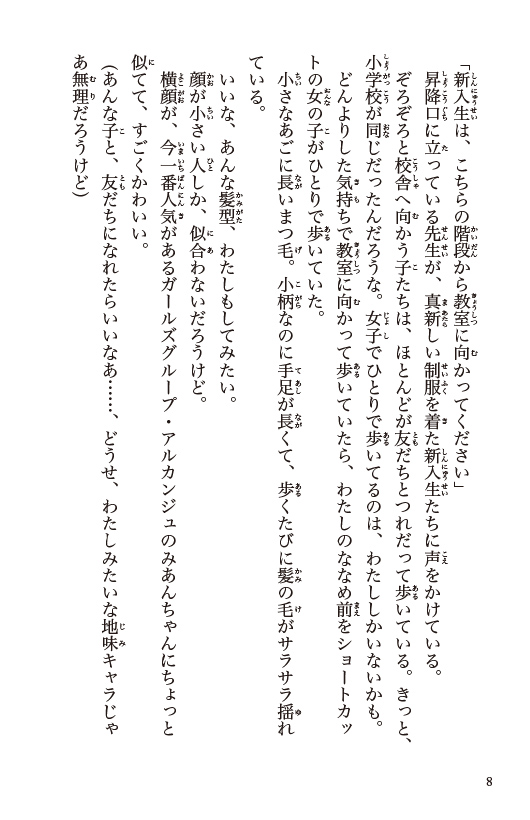 「新入生は、こちらの階段から教室に向かってください」
昇降口に立っている先生が、真新しい制服を着た新入生たちに声をかけている。
ぞろぞろと校舎へ向かう子たちは、ほとんどが友だちとつれだって歩いている。きっと、
小学校が同じだったんだろうな。女子でひとりで歩いてるのは、わたししかいないかも。
どんよりした気持ちで教室に向かって歩いていたら、わたしのななめ前をショートカッ
トの女の子がひとりで歩いていた。
小さなあごに長いまつ毛。小柄なのに手足が長くて、歩くたびに髪の毛がサラサラ揺れ
ている。
いいな、あんな髪型、わたしもしてみたい。
顔が小さい人しか、似合わないだろうけど。
横顔が、今一番人気があるガールズグループ・アルカンジュのみあんちゃんにちょっと
似てて、すごくかわいい。
（あんな子と、友だちになれたらいいなあ……、どうせ、わたしみたいな地味キャラじゃ
あ無理だろうけど）
8